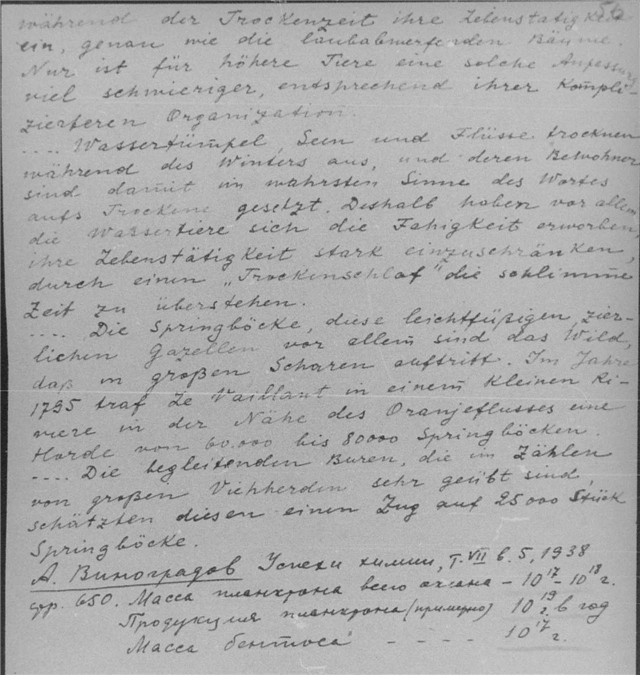 56
während der Trockenzeit ihre Lebenstätigkeit
ein, genau wie die laubabwerfenden Bäume.
Nur ist für höhere Tiere eine solche Anpassung
viel schwieriger, entsprechend ihrer Kompli-
zierteren Organization.
.... Wassertümpel, Seen und Flüsse trocknen
während des Winters aus, und deren Bewohner
sind damit im wahrsten Sinne des Wortes
aufs Trockene gesetzt. Deshalb haben vor allem
die Wassertiere sich die Fähigkeit erworben,
ihre Lebenstätigkeit stark einzuschränken,
durch einen „Trockenschlaf" die schlimme
Zeit zu überstehen.
.... Die Springböcke, diese leichtfüßigen, zier-
lichen Gazellen vor allem sind das Wild,
daß in großen Scharen auftritt. Im Jahre
1795 traf Le Vaillant in einem kleinen Ri-
viere in der Nähe des Oranjeflusses eine
Horde von 60.000 bis 80000 Springböcken.
.... Die begleitenden Buren, die im Zählen
von großen Viehherden sehr geübt sind,
schätzten diesen einen Zug auf 25000 Stück
Springböcke.
А. Виноградов Успехи химии, т. VII в. 5, 1938
стр. 650. Масса планктона всего океана – 10¹⁷ – 10¹⁸ г.
Продукция планктона (примерно) 10¹⁹ г. в год
Масса бентоса - - - - 10¹⁷ г.